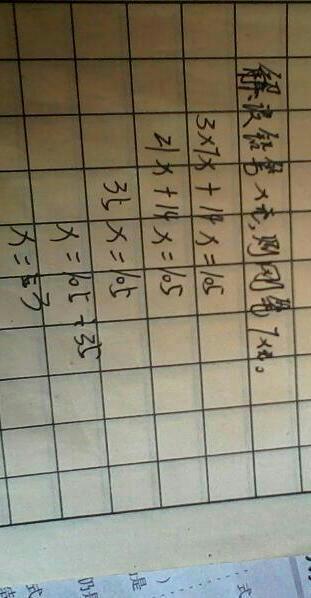 解设铅笔x元,则钢笔7x元。
3×7x+14x=105
21x+14x=105
35x=105
x=105÷35
x=3
是
式